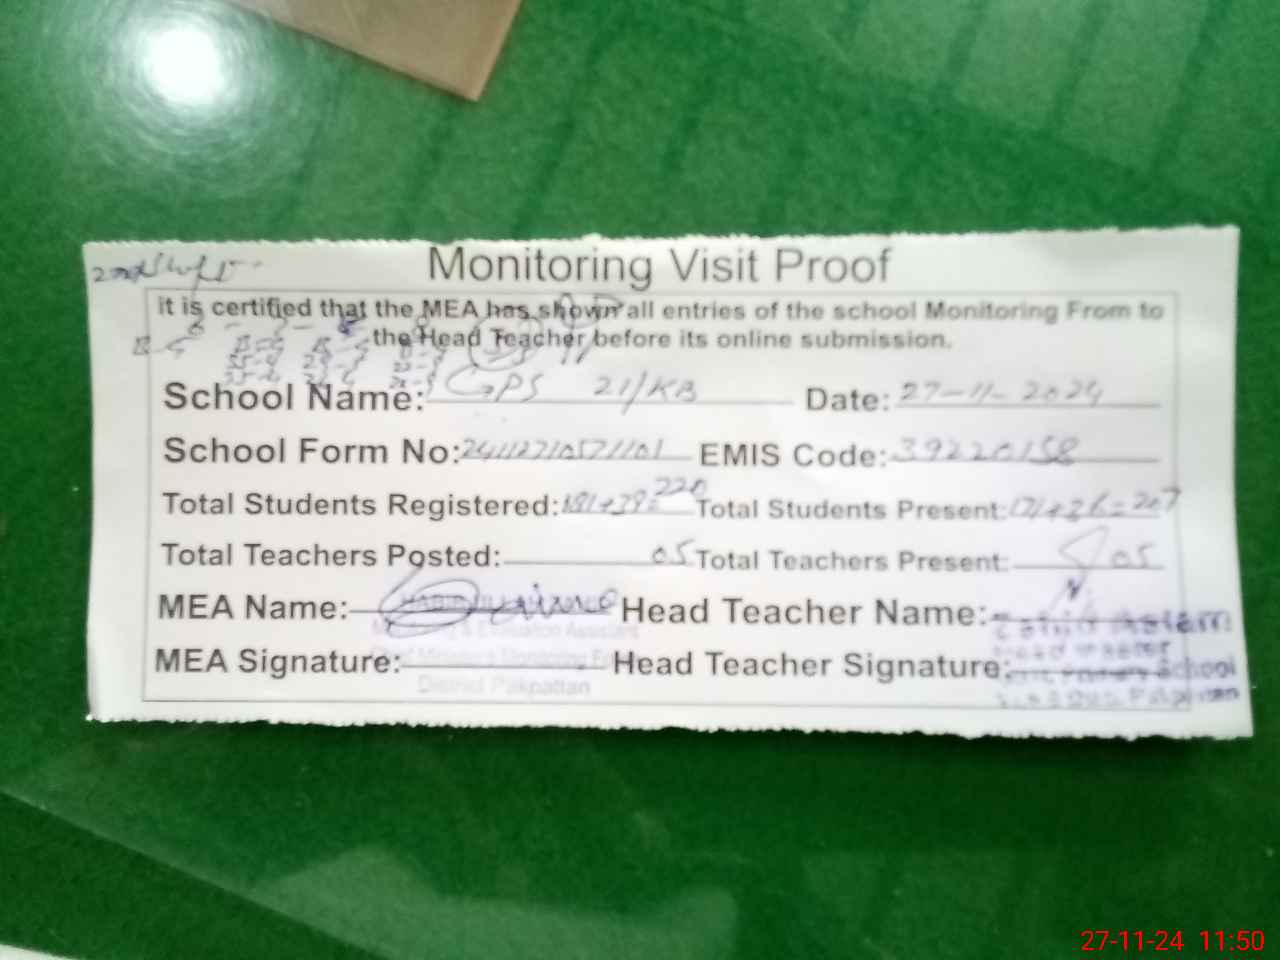 Monitoring Visit Proof
it is certified that the MEA has shown all entries of the school Monitoring From to
the Head Teacher before its online submission.
School Name: GPS 21/KB Date: 27-11-2024
School Form No: 24112710571101 EMIS Code: 39220158
Total Students Registered: 181+39=220 Total Students Present: 171+36=207
Total Teachers Posted: 05 Total Teachers Present: 05
MEA Name: Head Teacher Name: Aslam
Monitoring & Evaluation Assistant
MEA Signature: Head Teacher Signature: School
District Pakpattan
27-11-24 11:50